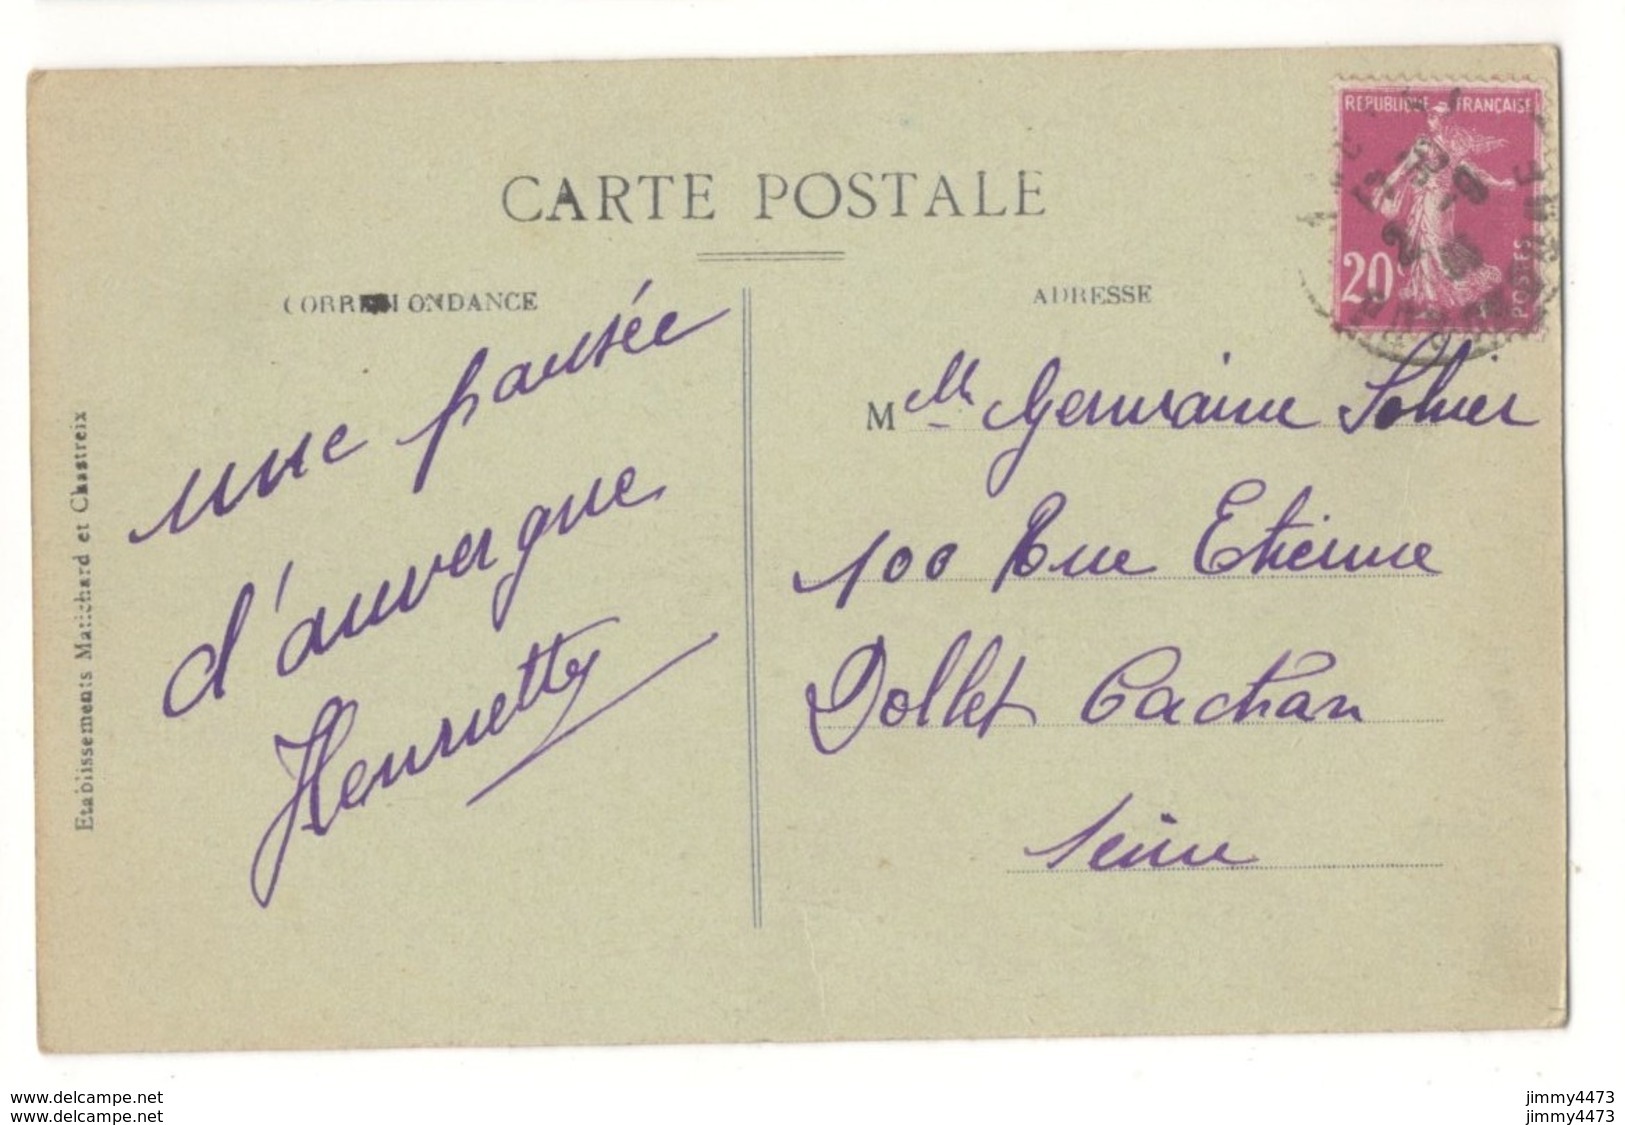 CARTE POSTALE
CORRESPONDANCE
une pansée
d'auvergne
Henriette
Etablissements Matichard et Chastreix
ADRESSE
REPUBLIQUE FRANÇAISE
20
POSTES
M elle Germaine Sohier
100 Rue Etienne
Dollet Cachan
Seine
www.delcampe.net
www.delcampe.net
jimmy4473
jimmy4473